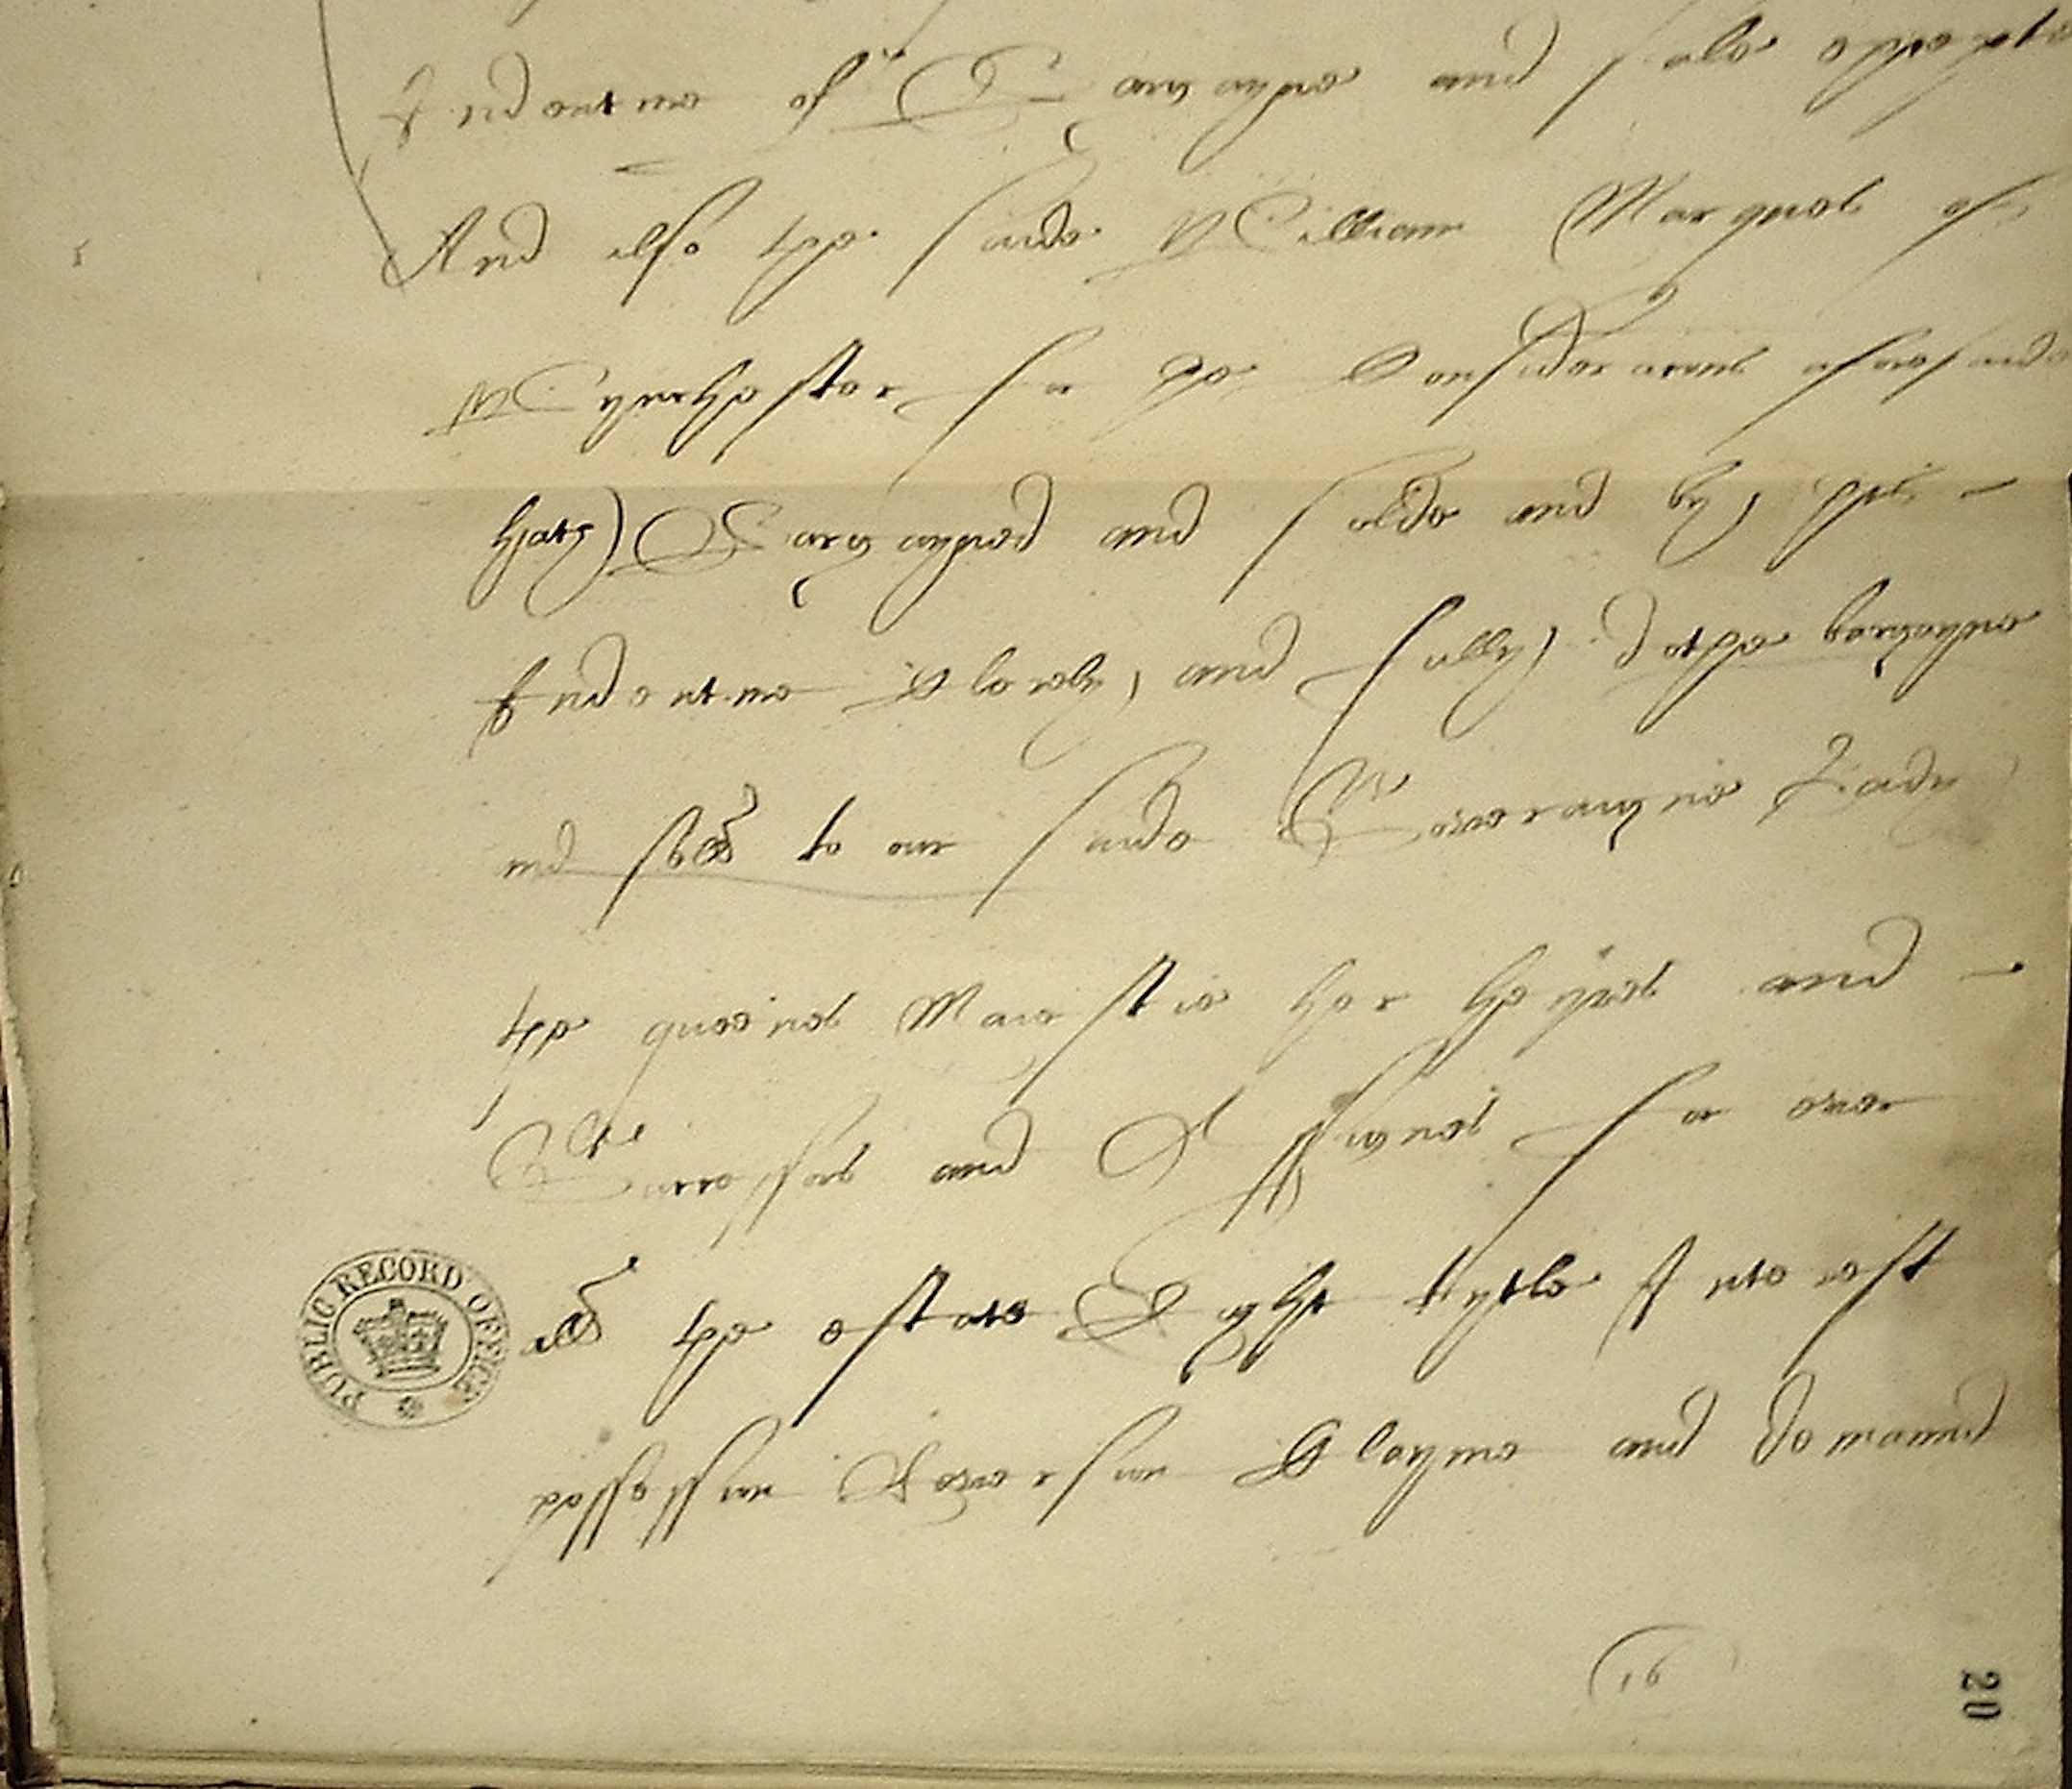 Indenture of Bargayne and sale
And also the saide William Marques of
Wynchester for the Consideracions aforesaide
hath Bargayned and solde and by this
Indenture Clerely and fully dothe bargayne
and sell to our saide Soveraigne Lady
the quenes Maiestie her heyres and
Successors and Assignes for ever
all the estate Ryght tytle Interest
possession Reversion Clayme and demaund
PUBLIC RECORD OFFICE
16
20